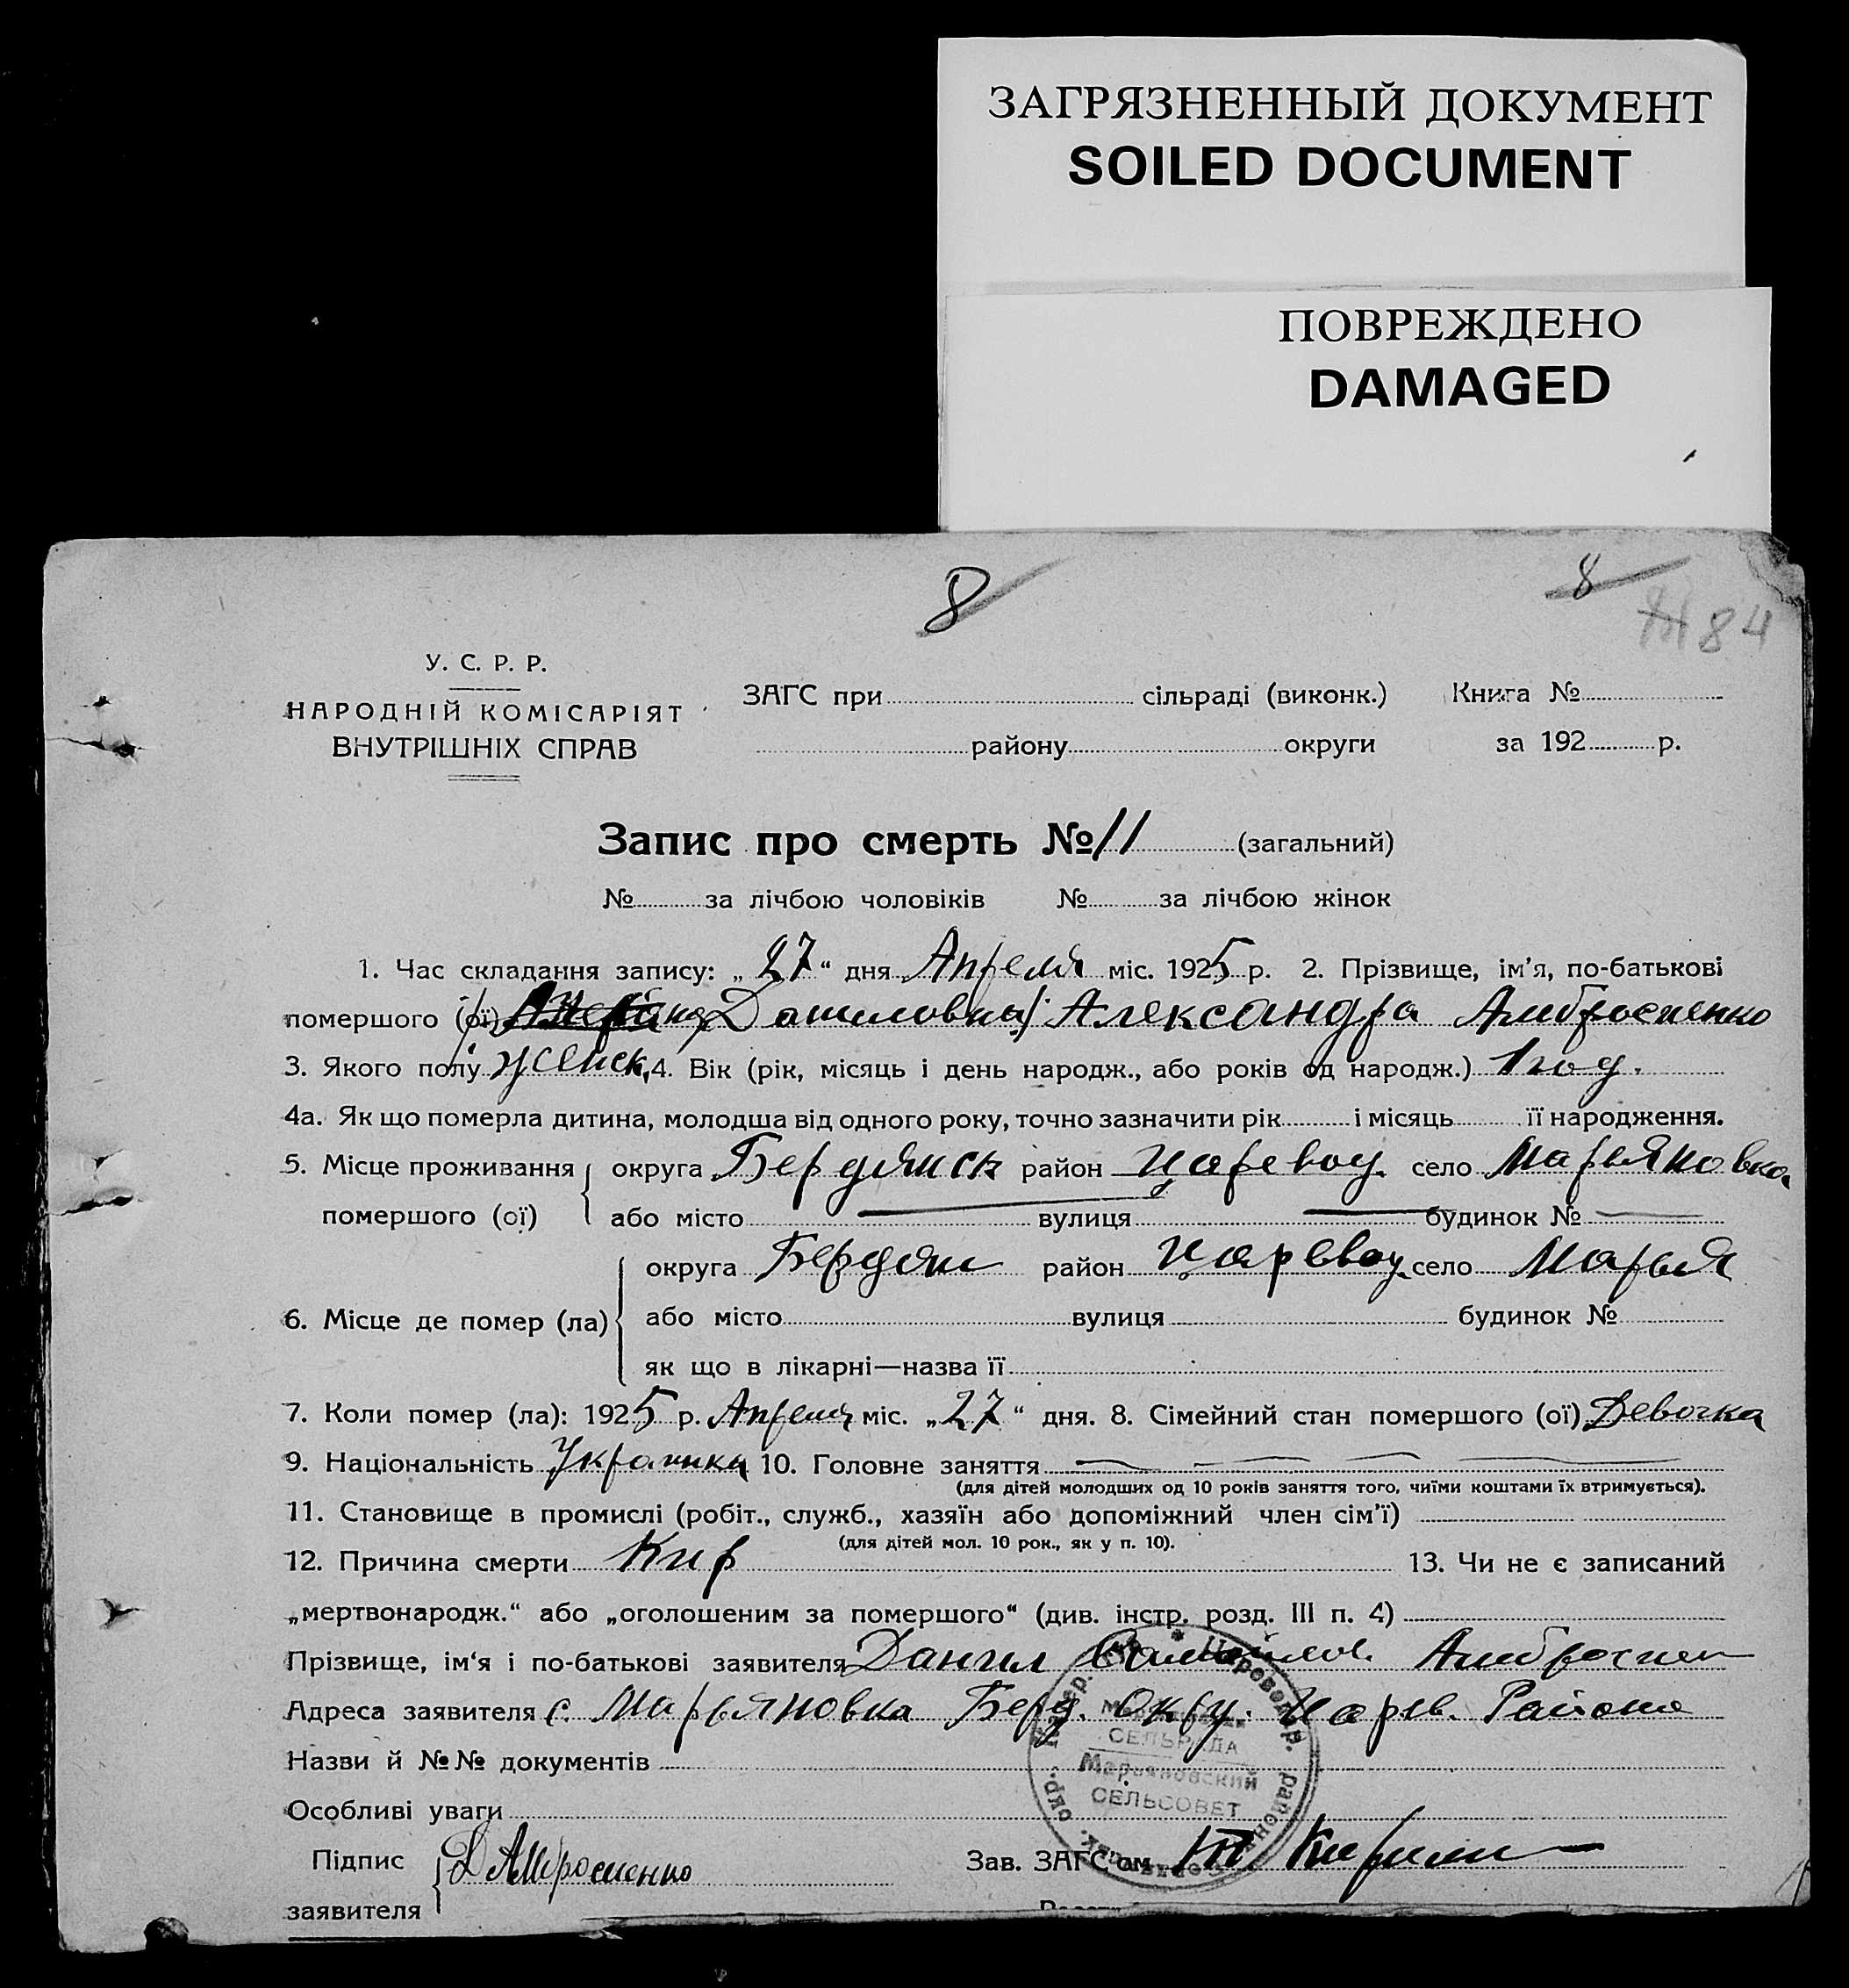 ЗАГРЯЗНЕННЫЙ ДОКУМЕНТ
SOILED DOCUMENT
ПОВРЕЖДЕНО
DAMAGED
8
8
84
У. С. Р. Р.
НАРОДНІЙ КОМІСАРІЯТ
ВНУТРІШНІХ СПРАВ
ЗАГС при сільраді (виконк.) Книга №
району округи за 192 р.
Запис про смерть № 11 (загальний)
№ за лічбою чоловіків № за лічбою жінок
1. Час складання запису: „27“ дня Апреля міс. 1925 р. 2. Прізвище, ім'я, по-батькові
помершого (ої) Даниловна Александра Амбросиенко
3. Якого полу женск. 4. Вік (рік, місяць і день народж., або років од народж.) 1 год.
4а. Як що померла дитина, молодша від одного року, точно зазначити рік і місяць її народження.
5. Місце проживання помершого (ої) округа Бердянск район Царевоц. село Марьяновка
або місто вулиця будинок №
6. Місце де помер (ла) округа Бердян район Царевоц. село Марья
або місто вулиця будинок №
як що в лікарні—назва її
7. Коли помер (ла): 1925 р. Апреля міс. „27“ дня. 8. Сімейний стан помершого (ої) Девочка
9. Національність Украинка 10. Головне заняття
(для дітей молодших од 10 років заняття того, чиїми коштами їх втримується).
11. Становище в промислі (робіт., служб., хазяїн або допоміжний член сім'ї)
(для дітей мол. 10 рок., як у п. 10).
12. Причина смерти Кир 13. Чи не є записаний
„мертвонародж.“ або „оголошеним за помершого“ (див. інстр. розд. III п. 4)
Прізвище, ім'я і по-батькові заявителя Данил Самойлов. Амбросиен
Адреса заявителя с. Марьяновка Берд. Окру. Царев. Района
Назви й №№ документів
СЕЛЬРАДА
Марьяновский
СЕЛЬСОВЕТ
Особливі уваги
Підпис заявителя Д Амбросиенко
Зав. ЗАГС'ом